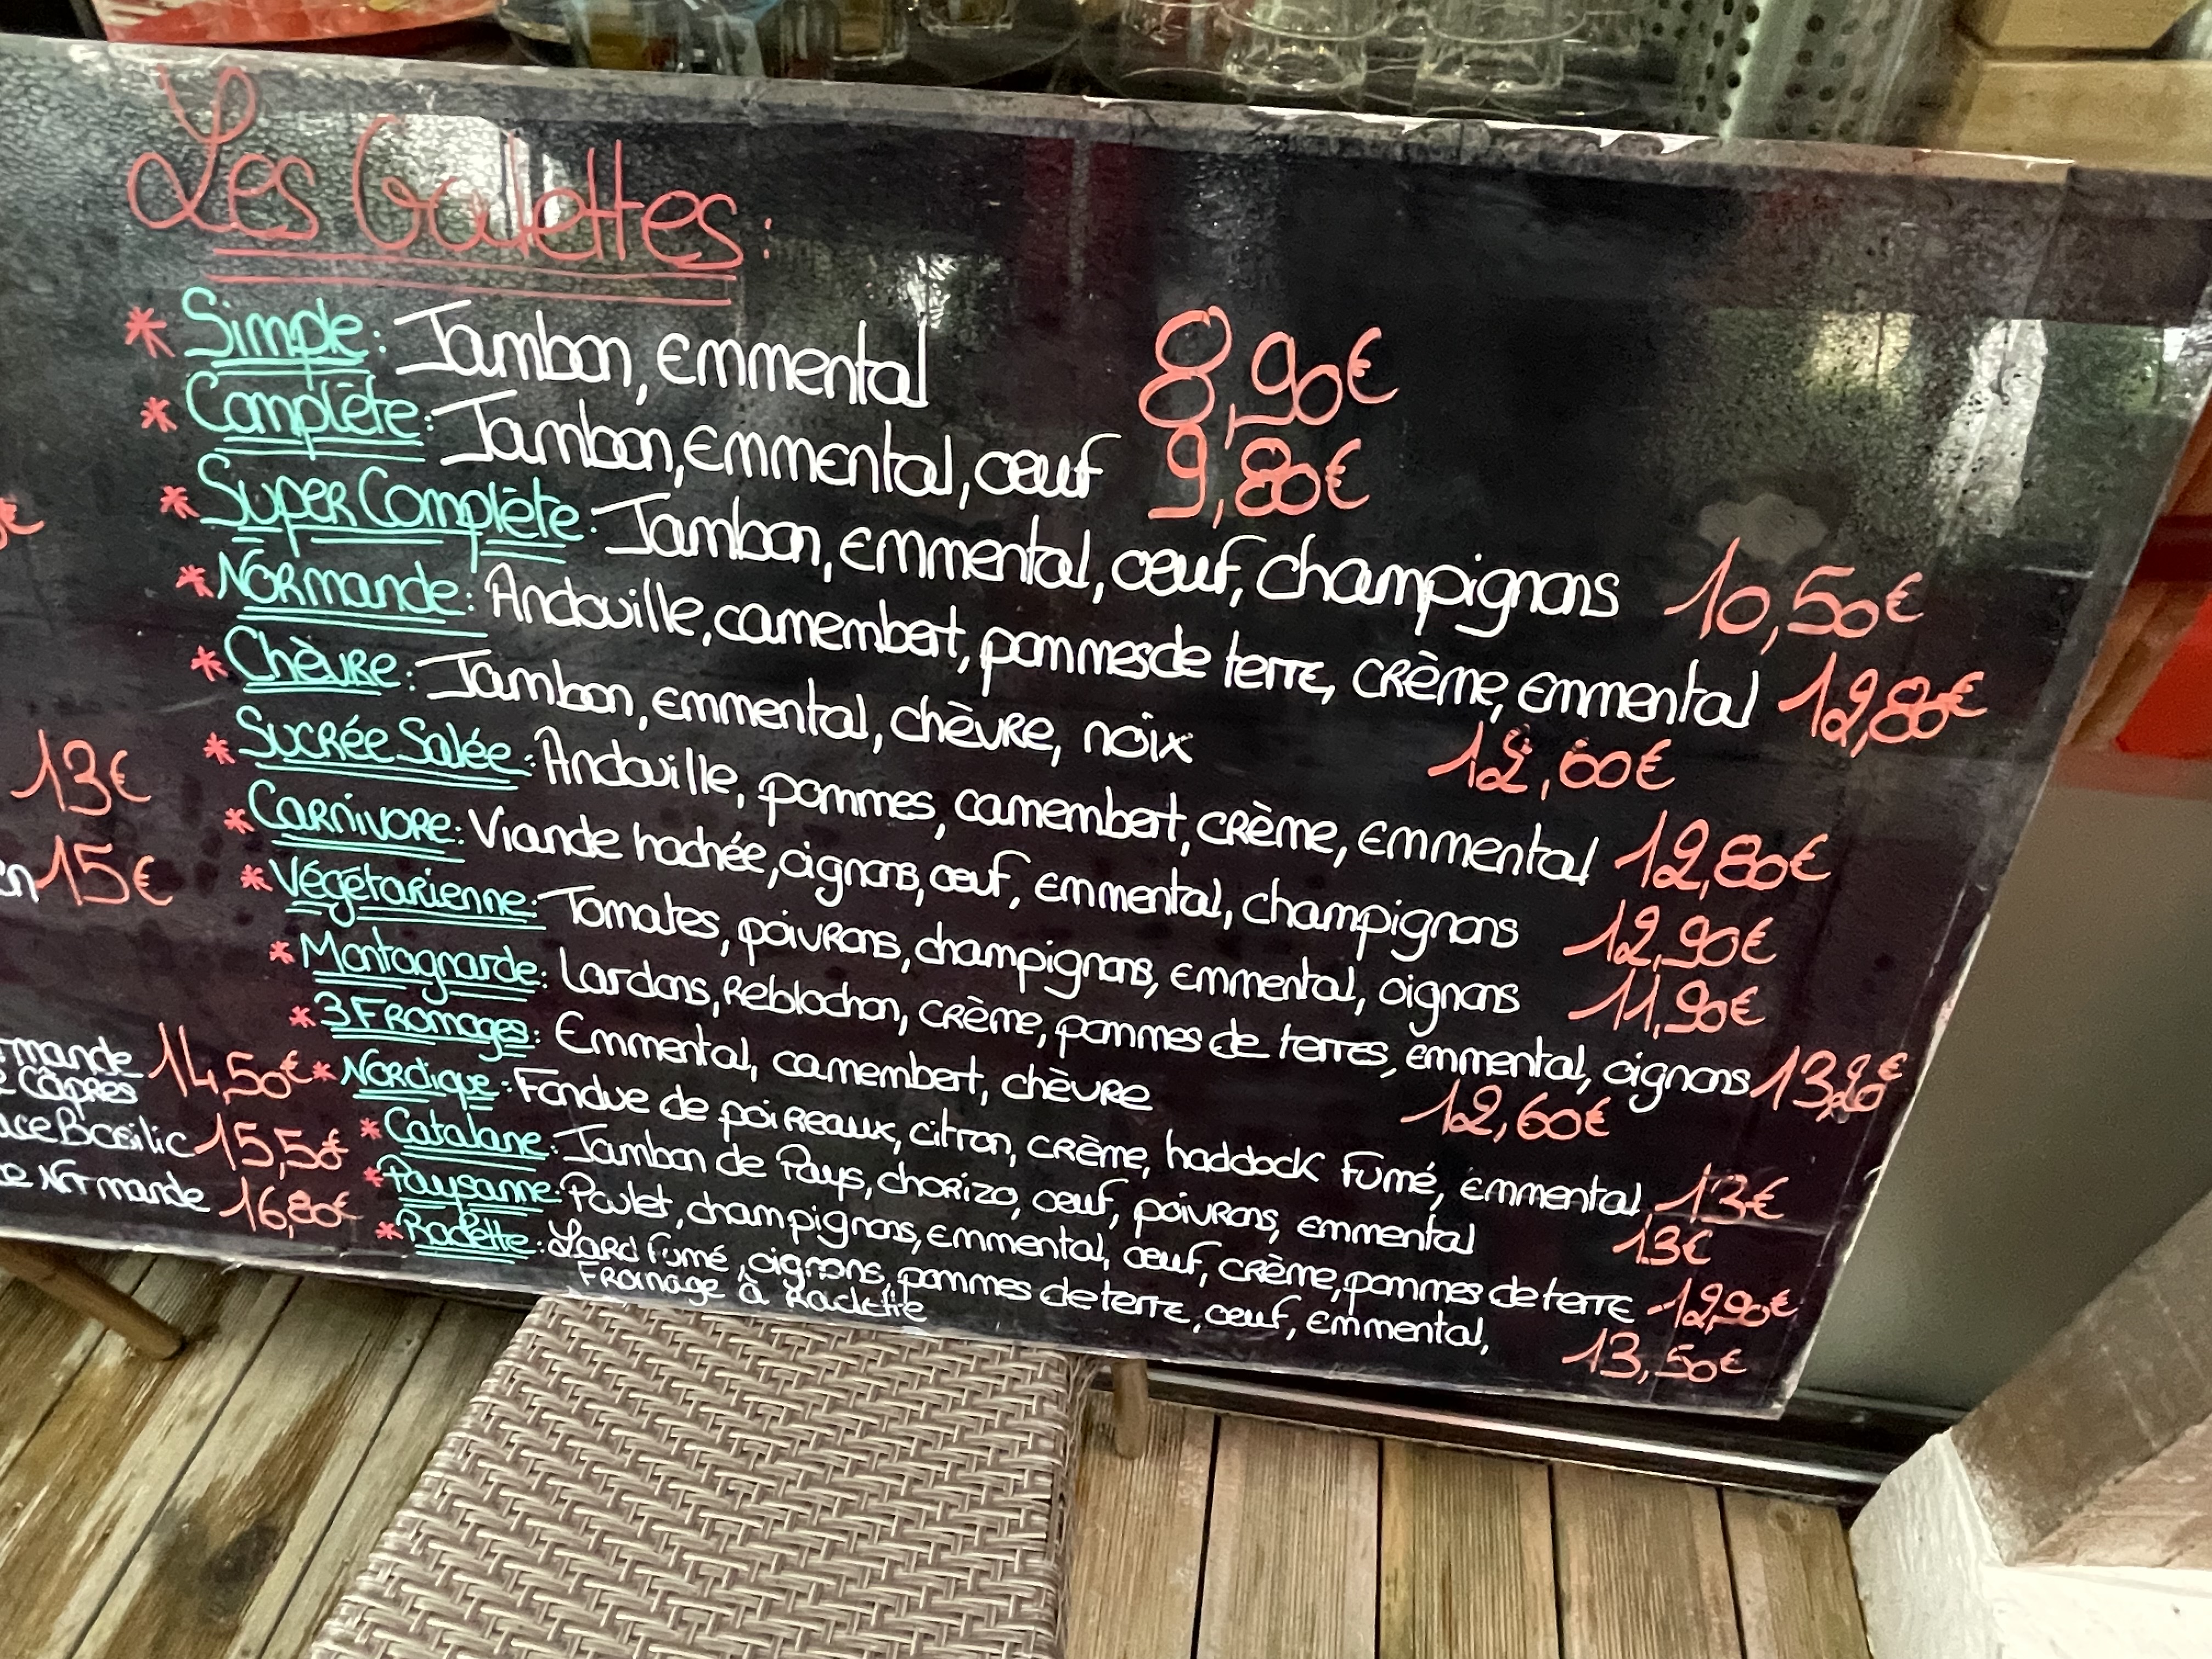 Les Galettes:
* Simple: Jambon, Emmental 8,90€
* Complète: Jambon, Emmental, œuf 9,80€
* Super Complète: Jambon, Emmental, œuf, champignons 10,50€
* Normande: Andouille, camembert, pommes de terre, crème, Emmental 12,80€
* Chèvre: Jambon, Emmental, chèvre, noix 12,60€
* Sucrée Salée: Andouille, pommes, camembert, crème, Emmental 12,80€
* Carnivore: Viande hachée, oignons, œuf, Emmental, champignons 12,90€
* Végétarienne: Tomates, poivrons, champignons, Emmental, oignons 11,90€
* Montagnarde: Lardons, Reblochon, crème, pommes de terres, Emmental, oignons 13,20€
* 3 Fromages: Emmental, camembert, chèvre 12,60€
* Nordique: Fondue de poireaux, citron, crème, haddock fumé, Emmental 13€
* Catalane: Jambon de Pays, chorizo, œuf, poivrons, Emmental 13€
* Paysanne: Poulet, champignons, Emmental, œuf, crème, pommes de terre 12,90€
* Raclette: Lard fumé, oignons, pommes de terre, œuf, Emmental,
Fromage à Raclette 13,50€
13€
15€
rmande 14,50€
Câpres
Basilic 15,50€
Normande 16,80€